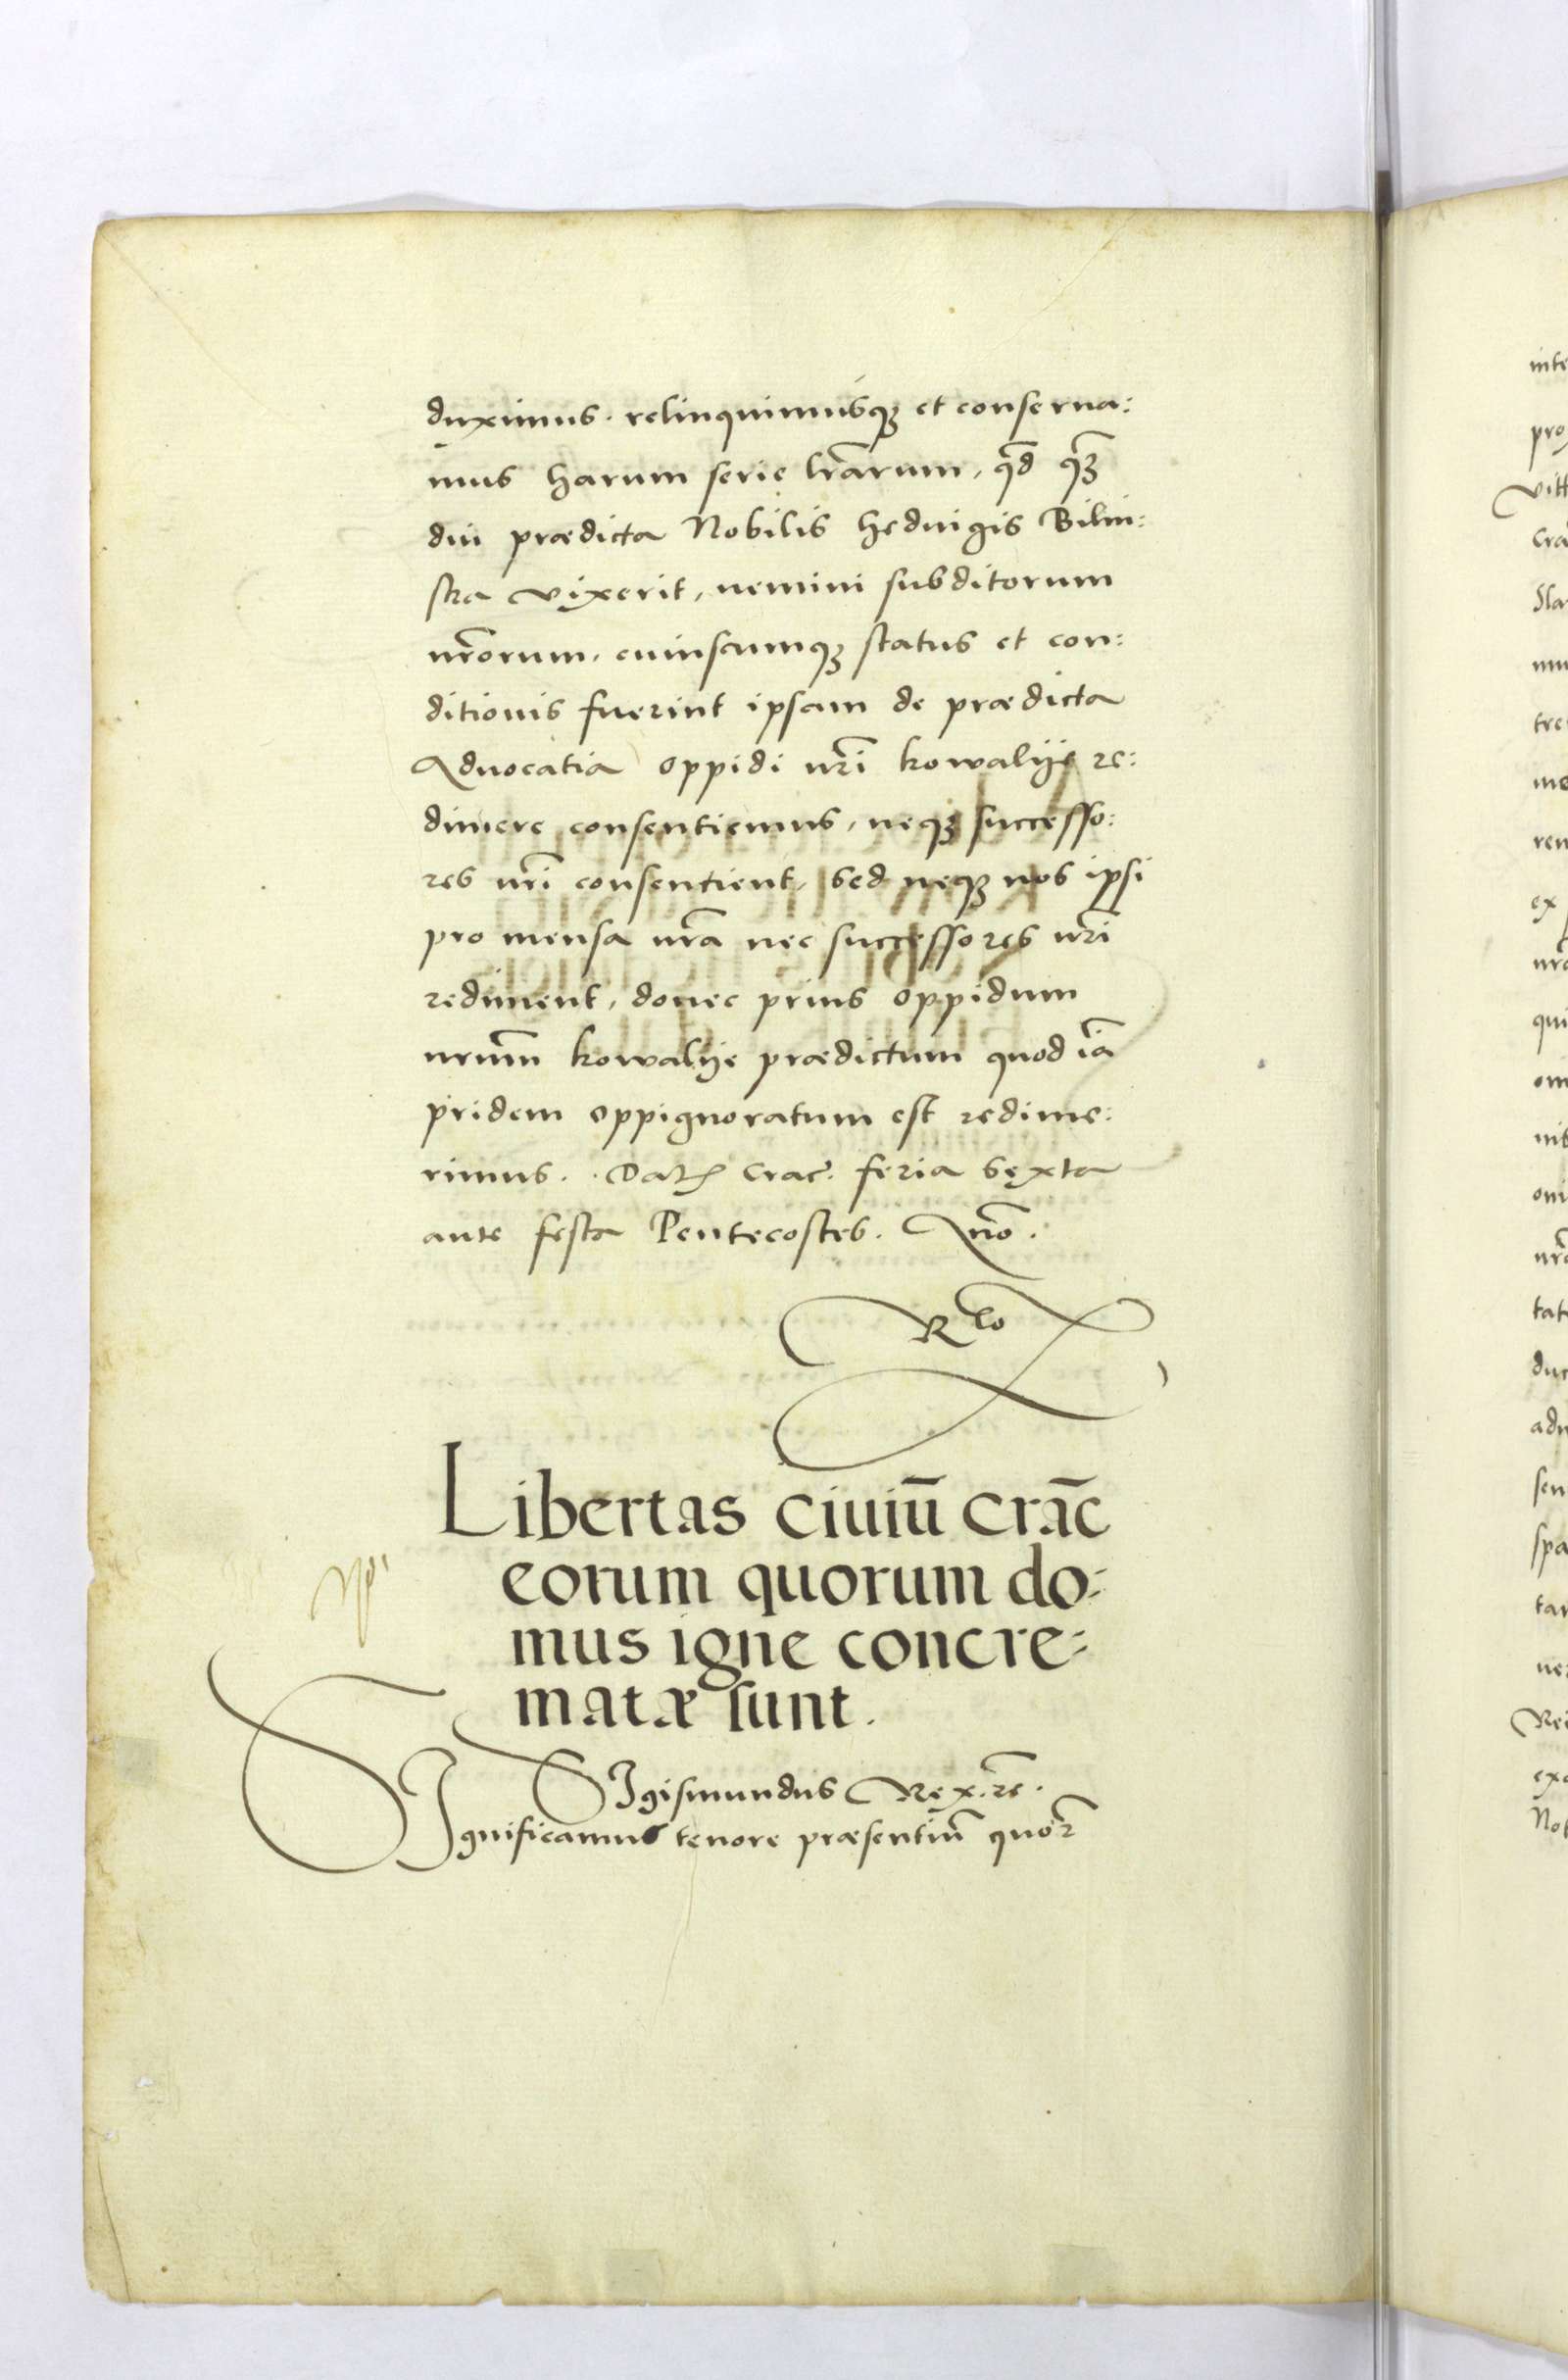 duximus. relinquimusqꝫ et conserua:
mus harum serie lr̃arum, qđ qꝫ̃
diu prædicta Nobilis heduigis Bilin:
ska vixerit, nemini subditorum
nr̃orum, cuiuscumqꝫ status et con:
ditionis fuerint ipsam de prædicta
Aduocatia oppidi nr̃i kowalije re:
dimere consentiemus, neqꝫ successo:
res nr̃i consentient, sed neqꝫ nos ipsi
pro mensa nr̃a nec successores nr̃i
rediment, donec prius oppidum
nrũm kowalije prædictum quod iã
pridem oppignoratum est redime:
rimus. Dat. Crac. feria sexta
ante festa Pentecostes. Año.
Rto
Libertas ciuiũ crac̃
eorum quorum do:
mus igne concre:
matæ sunt.
SIgismundus Rex. rc.
SIgnificamus tenore præsentiũ quor̃
inte
pro
vitt
Cra
Sla
tre
me
ren
ex
nr̃a
qui
om
nr̃a
tat
duc
adu
sen
spa
tan
exc
Not